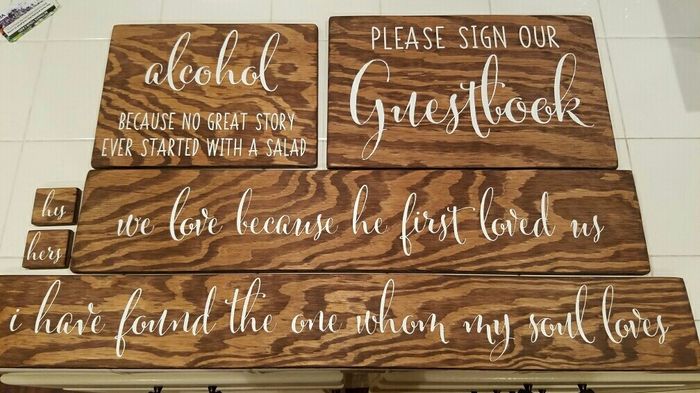 alcohol
BECAUSE NO GREAT STORY
EVER STARTED WITH A SALAD
PLEASE SIGN OUR
Guestbook
his
hers
we love because he first loved us
i have found the one whom my soul loves